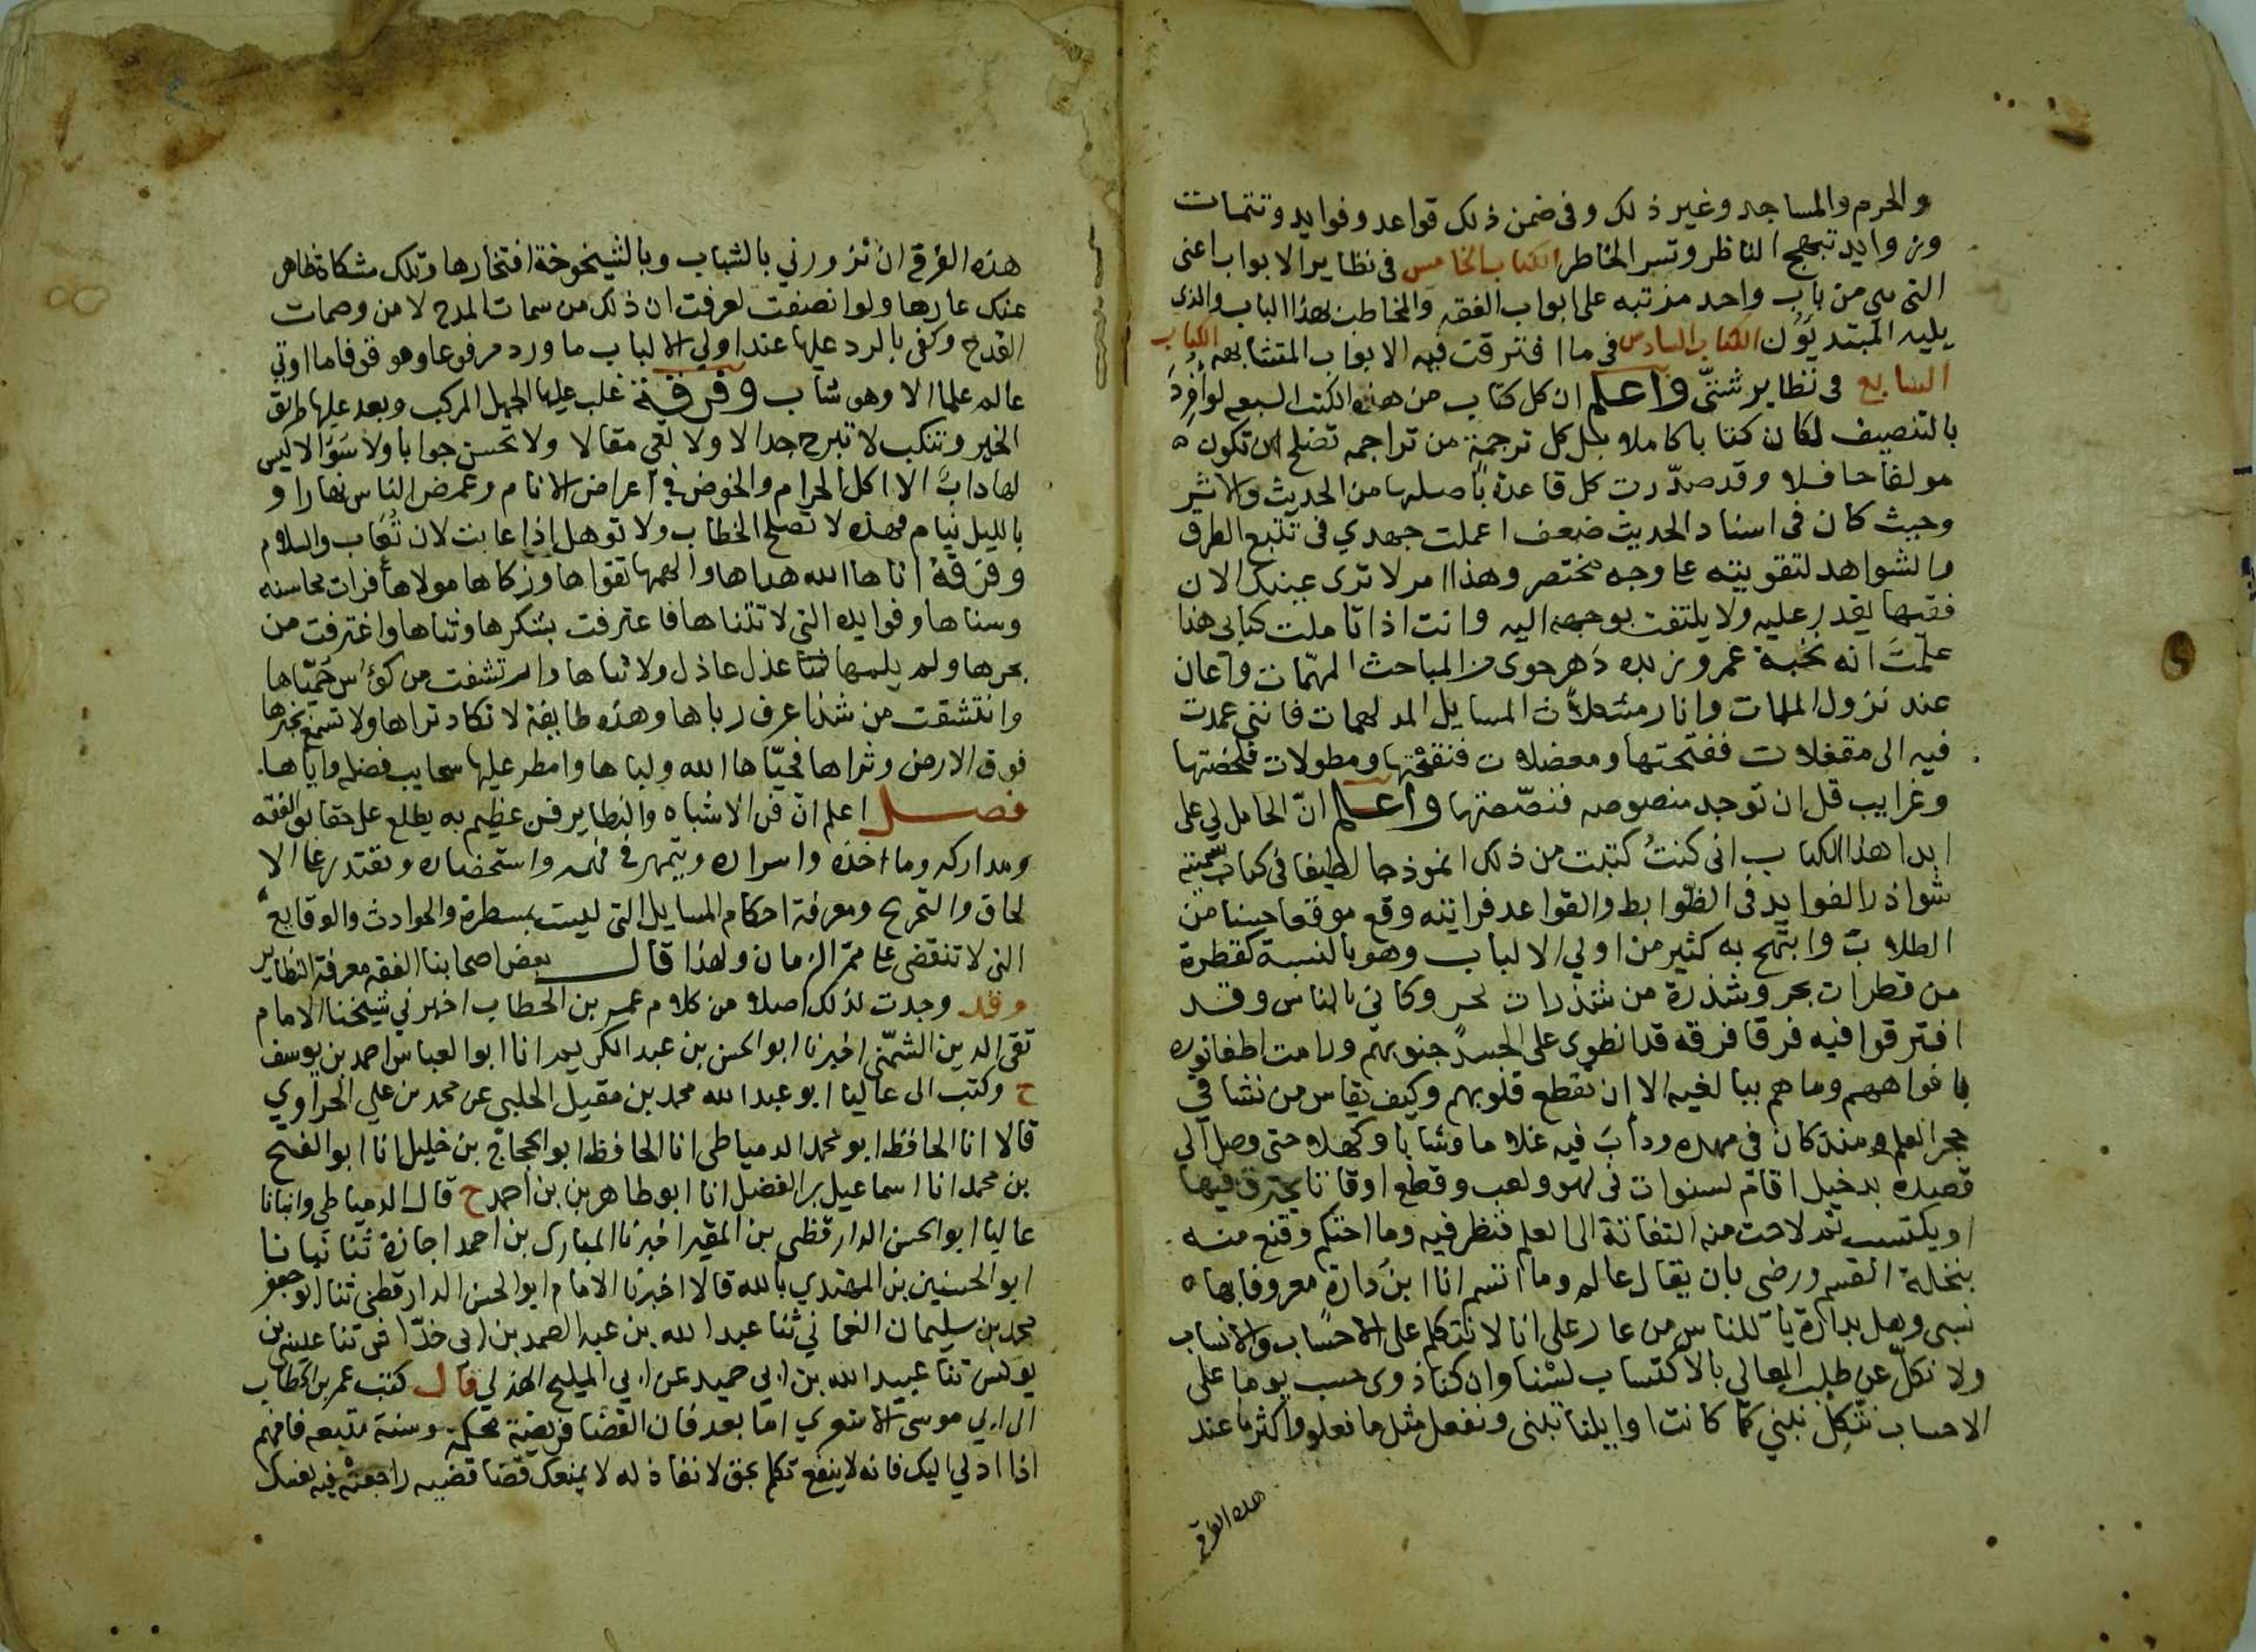 والحرم والمساجد وغير ذلك وفى ضمن ذلك قواعد وفوايد وتتمات
وزوايد تبهج الناظر وتسر الخاطر الكتاب الخامس فى نظاير الابواب اعنى
التى هى من باب واحد مرتبه على ابواب الفقه والمخاطب بهذا الباب والذى
يليه المبتديون الكتاب السادس فى ما افترقت فيه الابواب المتشابهه الكتاب
السابع فى نظاير شتى واعلم ان كل كتاب من هذه الكتب السبعه لو افرد
بالتصنيف لكان كتابا كاملا بل كل ترجمة من تراجمه تصلح ان تكون
مولفا حافلا وقد صدرت كل قاعدة باصلها من الحديث والاثر
وحيث كان فى اسناد الحديث ضعف اعملت جهدي فى تتبع الطرق
والشواهد لتقويته على وجه مختصر وهذا امر لا ترى عينك الان
فقيها يقدر عليه ولا يلتفت بوجهه اليه وانت اذا تاملت كتابى هذا
علمت انه نخبة عمر وزبدة دهر حوى من المباحث المهمات واعان
عند نزول الملمات وانار مشكلات المسايل المدلهمات فاننى عمدت
فيه الى مقفلات ففتحتها ومعضلات فنقحتها ومطولات فلخصتها
وغرايب قل ان توجد منصوصه فنصصتها واعلم ان الحامل لي على
ابدا هذا الكتاب انى كنت كتبت من ذلك انموذجا لطيفا فى كتاب سميته
شوارد الفوايد فى الضوابط والقواعد فرايته وقع موقعا حسنا من
الطلاب وابتهج به كثير من اولي الالباب وهو بالنسبة كقطرة
من قطرات بحر وشذرة من شذرات نحر وكاني بالناس وقد
افترقوا فيه فرقا فرقه قد انطوى على الحسد جنوبهم ورامت اطفا نوره
بافواههم وما هم ببالغيه الا ان تقطع قلوبهم وكيف يقاس من نشا في
حجر العلم منذ كان فى مهده ودأب فيه غلاما وشابا وكهلا حتى وصل الى
قصده بدخيل اقام سنوات فى لهو ولعب وقطع اوقاتا يحترف فيها
او يكتسب ثم لاحت منه التفاتة الى العلم فنظر فيه وما احتكم وقنع منه
بتحلة القسم ورضى بان يقال عالم وما اتسم انا ابن دارة معروفا بها
نسبى وهل بدارة يا للناس من عار على انا لا نتكلم على الاحساب والانساب
ولا نكل عن طلب المعالي بالاكتساب لسنا وان كنا ذوى حسب يوما على
الاحساب نتكل نبني كما كانت اوايلنا تبنى ونفعل مثل ما فعلوا واكثر ما عند
هذه الفرقة
هذه الفرقة ان تزورني بالشباب وبالشيخوخة افتخارها وتلك شكاة ظاهر
عنك عارها ولو انصفت لعرفت ان ذلك من سمات المدح لا من وصمات
القدح وكفى بالرد عليها عند اولي الالباب ما ورد مرفوعا وموقوفا ما اوتي
عالم علما الا وهو شاب وفرقة غلب عليها الجهل المركب وبعد عليها طريق
الخير وتنكب لا تبرح جدالا ولا تعي مقالا ولا تحسن جوابا ولا سوالا ليس
لها داب الا اكل الحرام والخوض في اعراض الانام وغمض الناس نهارا و
بالليل نيام فهذه لا تصلح الخطاب ولا توهل اذا عابت لان تعاب والسلام
وفرقة اتاها الله هداها والهمها تقواها وزكاها مولاها فرات محاسنه
وسناها وفوايده التى لا تتناها فاعترفت بشكرها وثناها واغترفت من
بحرها ولم يلهها عذل عاذل ولا ثناها وارتشفت من كوس حمياها
وانتشقت من شذا عرف رباها وهذه طايفة لا تكاد تراها ولا تسمع بخبرها
فوق الارض وثراها فحياها الله ولباها وامطر عليها سحايب فضله واياها
فصل اعلم ان فن الاشباه والنظاير فن عظيم به يطلع على حقايق الفقه
ومداركه وماخذه واسراره ويتمهر في فهمه واستحضاره ويقتدر على الا
لحاق والتخريج ومعرفة احكام المسايل التى ليست بمسطرة والحوادث والوقايع
التى لا تنقضى على ممر الزمان ولهذا قال بعض اصحابنا الفقه معرفة النظاير
وقد وجدت لذلك اصلا من كلام عمر بن الخطاب اخبرني شيخنا الامام
تقى الدين الشمنى اخبرنا ابو الحسن بن عبد الكريم انا ابو العباس احمد بن يوسف
ح وكتب الى عاليا ابو عبد الله محمد بن مقبل الحلبى عن محمد بن علي الحراوي
قالا انا الحافظ ابو محمد الدمياطى انا الحافظ ابو الحجاج بن خليل انا ابو الفتح
بن محمد انا اسماعيل بن الفضل انا ابو طاهر بن بن احمد ح قال الدمياطى وانبانا
عاليا ابو الحسن الدارقظى بن المقير اخبرنا المبارك بن احمد اجازة ثنا نبانا
ابو الحسنين بن المهتدي بالله قالا اخبرنا الامام ابو الحسن الدارقطنى ثنا ابو جعفر
محمد بن سليمان النعماني ثنا عبد الله بن عبد الصمد بن ابى خداش ثنا عيسى بن
يونس ثنا عبيد الله بن ابي حميد عن ابي المليح الهذلي قال كتب عمر بن الخطاب
الى ابي موسى الاشعري اما بعد فان القضا فريضة محكمة وسنة متبعه فافهم
اذا ادلي اليك فانه لا ينفع تكلم بحق لا نفاذ له لا يمنعك قضا قضيه راجعت فيه نفسك